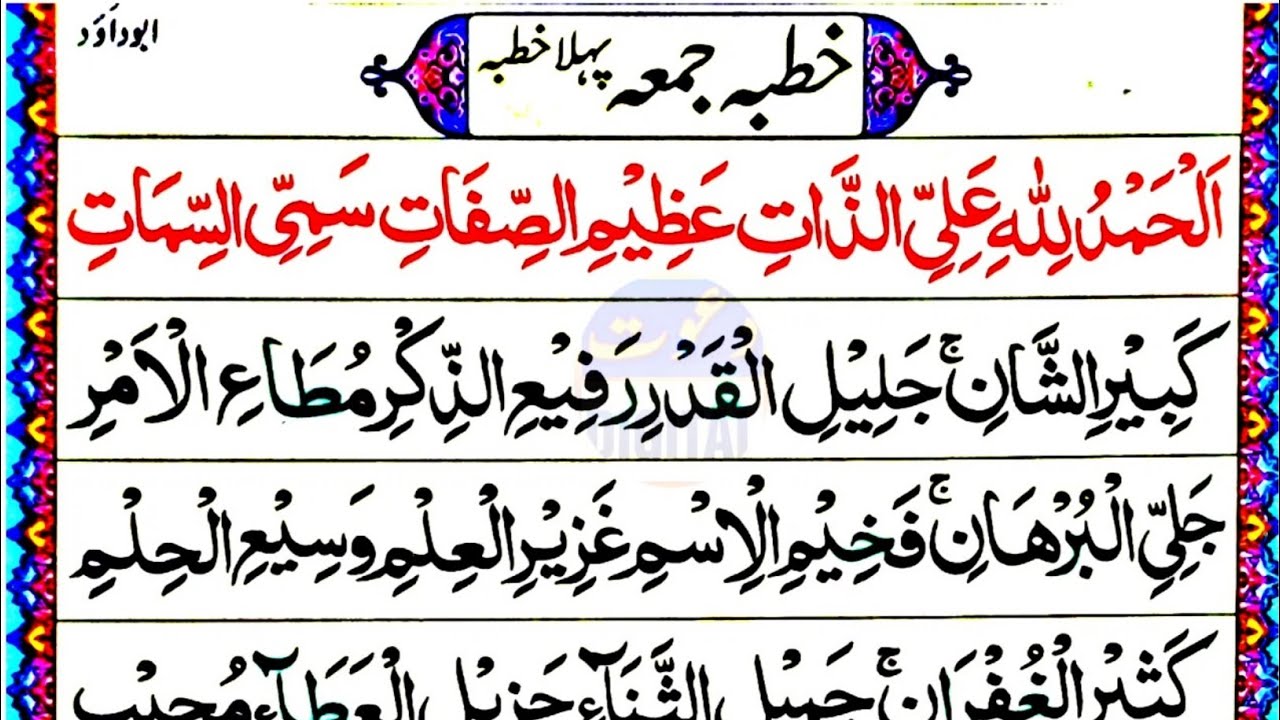 ابوداوَد
خطبہ جمعہ پہلا خطبہ
اَلْحَمْدُ لِلّٰهِ عَلِيِّ الذَّاتِ عَظِيْمِ الصِّفَاتِ سَمِيِّ السِّمَاتِ
كَبِيْرِ الشَّانِ ۚ جَلِيْلِ الْقَدْرِ رَفِيْعِ الذِّكْرِ مُطَاعِ الْاَمْرِ
جَلِيِّ الْبُرْهَانِ ۚ فَخِيْمِ الْاِسْمِ غَزِيْرِ الْعِلْمِ وَسِيْعِ الْحِلْمِ
كَثِيْرِ الْغُفْرَانِ ۚ جَمِيْلِ الثَّنَآءِ جَزِيْلِ الْعَطَآءِ مُجِيْبِ
دعوت
DIGITAL